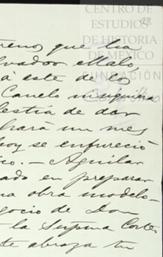 CENTRO DE
ESTUDIOS
DE HISTORIA
DE MÉXICO
FUNDACIÓN
reno, que la
vador Malo
á este de los
Canelo ninguna
estia de dar
hará un mes
oy se enfureció
co. — Aguilar
ado en preparar
na obra modelo
gocio de Don
la Suprema Corte
te abraza tu